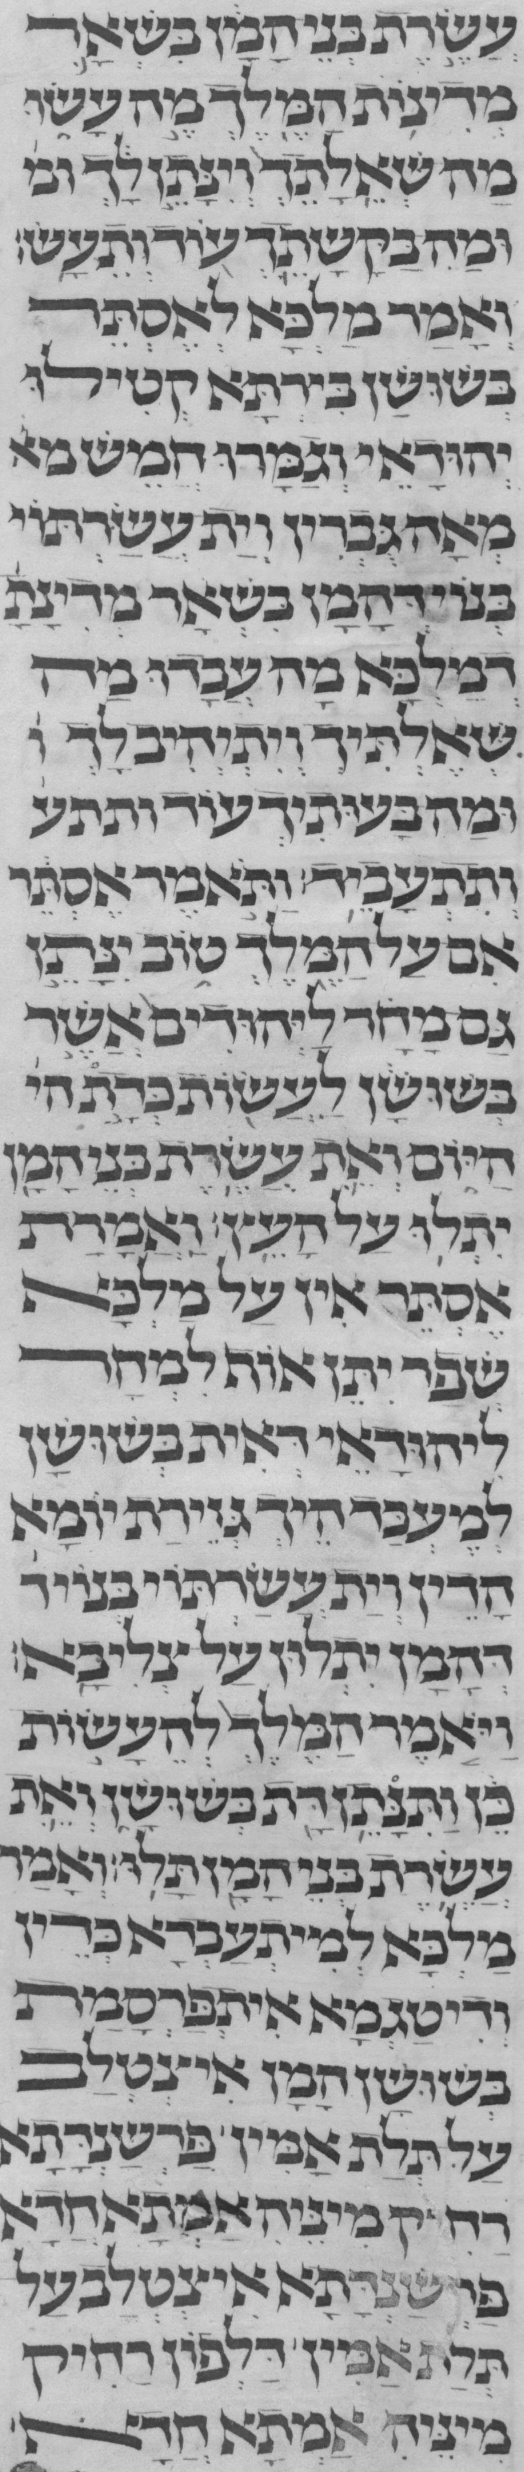 עֲשֶׂרֶת בְּנֵי הָמָן בִּשְׁאָר
מְדִינוֹת הַמֶּלֶךְ מֶה עָשׂוּ
מַה שְּׁאֵלָתֵךְ וְיִנָּתֵן לָךְ ומ
וּמַה בַּקָּשָׁתֵךְ עוֹד וְתֵעָשׂ׃
וַאֲמַר מַלְכָּא לְאֶסְתֵּר
בְּשׁוּשַׁן בִּירְתָּא קְטִילוּ
יְהוּדָאֵי וְגַמָּרוּ חֲמֵשׁ מא
מְאָה גֻּבְרִין וְיַת עֲשַׂרְתּוֹי
בְּנוֹי דְּהָמָן בִּשְׁאָר מְדִינָתָ
דְמַלְכָּא מָה עֲבָדוּ מַה
שְׁאֶלְתִּיךְ וְיִתְיְהִיב לָךְ ו
וּמַה בָּעוּתִיךְ עוֹד ותתע
וְתִתְעֲבֵיד׃ וַתֹּאמֶר אֶסְתֵּר
אִם עַל הַמֶּלֶךְ טוֹב יִנָּתֵן
גַּם מָחָר לַיְּהוּדִים אֲשֶׁר
בְּשׁוּשָׁן לַעֲשׂוֹת כְּדָת הי
הַיּוֹם וְאֵת עֲשֶׂרֶת בְּנֵי הָמָן
יִתְלוּ עַל הָעֵץ׃ וַאֲמָרַת
אֶסְתֵּר אִין עַל מַלְכָּא
שְׁפַר יִתֵּן אוֹת לִמְחָר
לִיהוּדָאֵי דְּאִית בְּשׁוּשָׁן
לְמֶעְבַּד הֵיךְ גְּזֵירַת יוֹמָא
הָדֵין וְיַת עֲשַׂרְתּוֹי בְּנוֹי ד
דְּהָמָן יִתְלוּן עַל צְלִיבָא׃
וַיֹּאמֶר הַמֶּלֶךְ לְהֵעָשׂוֹת
כֵּן וַתִּנָּתֵן דָּת בְּשׁוּשָׁן וְאֵת
עֲשֶׂרֶת בְּנֵי הָמָן תָּלוּ׃ וַאֲמַר
מַלְכָּא לְמִיתְעַבְּדָא כְּדֵין
וְדִיטַגְמָא אִיתְפַּרְסַמַת
בְּשׁוּשַׁן הָמָן אִיצְטְלַב
עַל תְּלַת אַמִּין׳ פַּרְשַׁנְדָּתָא
רַחִיק מִינֵּיהּ אַמְּתָא חֲדָא
פַּרְשַׁנְדָּתָא אִיצְטְלַב עַל
תְּלַת אַמִּין׳ דַּלְפוֹן רַחִיק
מִינֵּיהּ אַמְּתָא חֲדָא׳